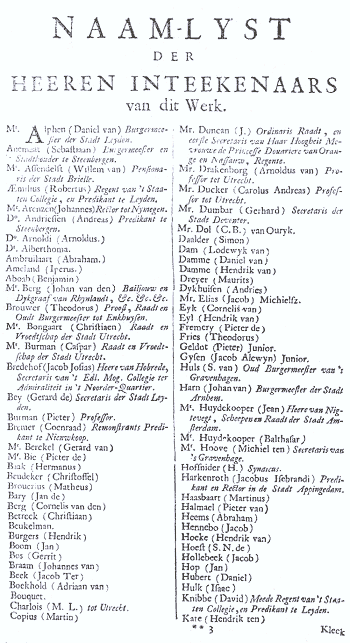 NAAM-LYST
DER
HEEREN INTEEKENAARS
van dit Werk.
Mr. Alphen (Daniel van) Burgermee-
ster der Stadt Leyden.
(Sebastiaan) Burgermeester en
Stadthouder te Steenbergen.
Mr. Assendelft (Willem van) Pensiona-
ris der Stadt Brielle.
Æmilius (Robertus) Regent van 't Staa-
ten Collegie, en Predikant te Leyden.
Mr. Arntzen (Johannes) Rector tot Nymegen.
Dr. Andriessen (Andreas) Predikant te
Steenbergen.
Dr. Arnoldi (Arnoldus.)
Dr. Alberthoma.
Ambruikaart (Abraham.)
Ameland (Iperus.)
Aboab (Benjamin)
Mr. Berg (Johan van den) Bailjouw en
Dykgraaf van Rhynlandt, &c. &c. &c.
Brouwer (Theodorus) Proost, Raadt en
Oudt Burgermeester tot Enkhuysen.
Mr. Bongaart (Christiaen) Raadt en
Vroedtschap der Stadt Utrecht.
Mr. Burman (Caspar) Raadt en Vroedt-
schap der Stadt Utrecht.
Bredehof (Jacob Josias) Heere van Hobrede,
Secretaris van 't Edl. Mog. Collegie ter
Admiraliteit in 't Noorder-Quartier.
Bey (Gerard de) Secretaris der Stadt Ley-
den.
Burman (Pieter) Professor.
Bremer (Coenraad) Remonstrants Predi-
kant te Nieuwkoop.
Mr. Berckel (Gerard van)
Mr. Bie (Pieter de)
Bink (Hermanus)
Beudeker (Christoffel)
Brouerius (Matheus)
Bary (Jan de)
Berg (Cornelis van den)
Betreck (Christiaan)
Beukelman.
Burgers (Hendrik)
Boom (Jan)
Bos (Gerrit)
Braam (Johannes van)
Beek (Jacob Ter)
Boekhold (Adriaan van)
Bouquet.
Charlois (M. L.) tot Utrecht.
Copius (Martin)
Mr. Duncan (J.) Ordinaris Raadt, en
eerste Secretaris van Haar Hoogheit Me-
vrouwe de Princesse Douariere van Oran-
ge en Nassauw, Regente.
Mr. Drakenborg (Arnoldus van) Pro-
fessor tot Utrecht.
Mr. Ducker (Carolus Andreas) Profes-
sor tot Utrecht.
Mr. Dumbar (Gerhard) Secretaris der
Stadt Deventer.
Mr. Dol (C. B.) van Ouryk.
Daalder (Simon)
Dam (Lodewyk van)
Damme (Daniel van)
Damme (Hendrik van)
Dreyer (Maurits)
Dykhuisen (Andries)
Mr. Elias (Jacob) Michielsz.
Eyk (Cornelis van)
Eyl (Hendrik van)
Fremery (Pieter de)
Fries (Theodorus)
Geldot (Pieter) Junior.
Gysen (Jacob Alewyn) Junior.
Huls (S. van) Oud Burgermeester van 's
Gravenhagen.
Harn (Johan van) Burgermeester der Stadt
Arnhem.
Mr. Huydekooper (Jean) Heere van Nig-
tevegt, Schepen en Raadt der Stadt Am-
sterdam.
Mr. Huyd-kooper (Balthasar)
Mr. Hoove (Michiel ten) Secretaris van
's Gravenhage.
Hoffnider (H.) Syndicus.
Harkenroth (Jacobus Isebrandi) Predi-
kant en Rector in de Stadt Appingedam.
Haasbaart (Martinus)
Halmael (Pieter van)
Heems (Abraham)
Hennebo (Jacob)
Hoeke (Hendrik van)
Hoest (S. N. de)
Hollebeek (Jacob)
Hop (Jan)
Hubert (Daniel)
Hulk (Isaac)
Knibbe (David) Meede Regent van 't Staa-
ten Collegie, en Predikant te Leyden.
Kate (Hendrik ten)
** 3 Kleek